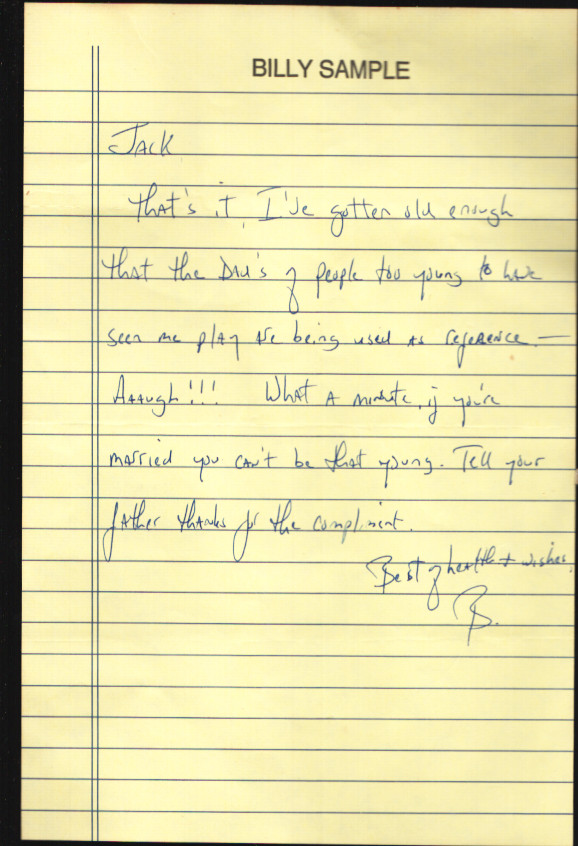 BILLY SAMPLE
Jack
That's it, I've gotten old enough
that the Dad's of people too young to have
seen me play are being used as reference. —
Aaaugh!!! What a minute, if you're
married you can't be that young. Tell your
father thanks for the compliment.
Best of health + wishes,
B.